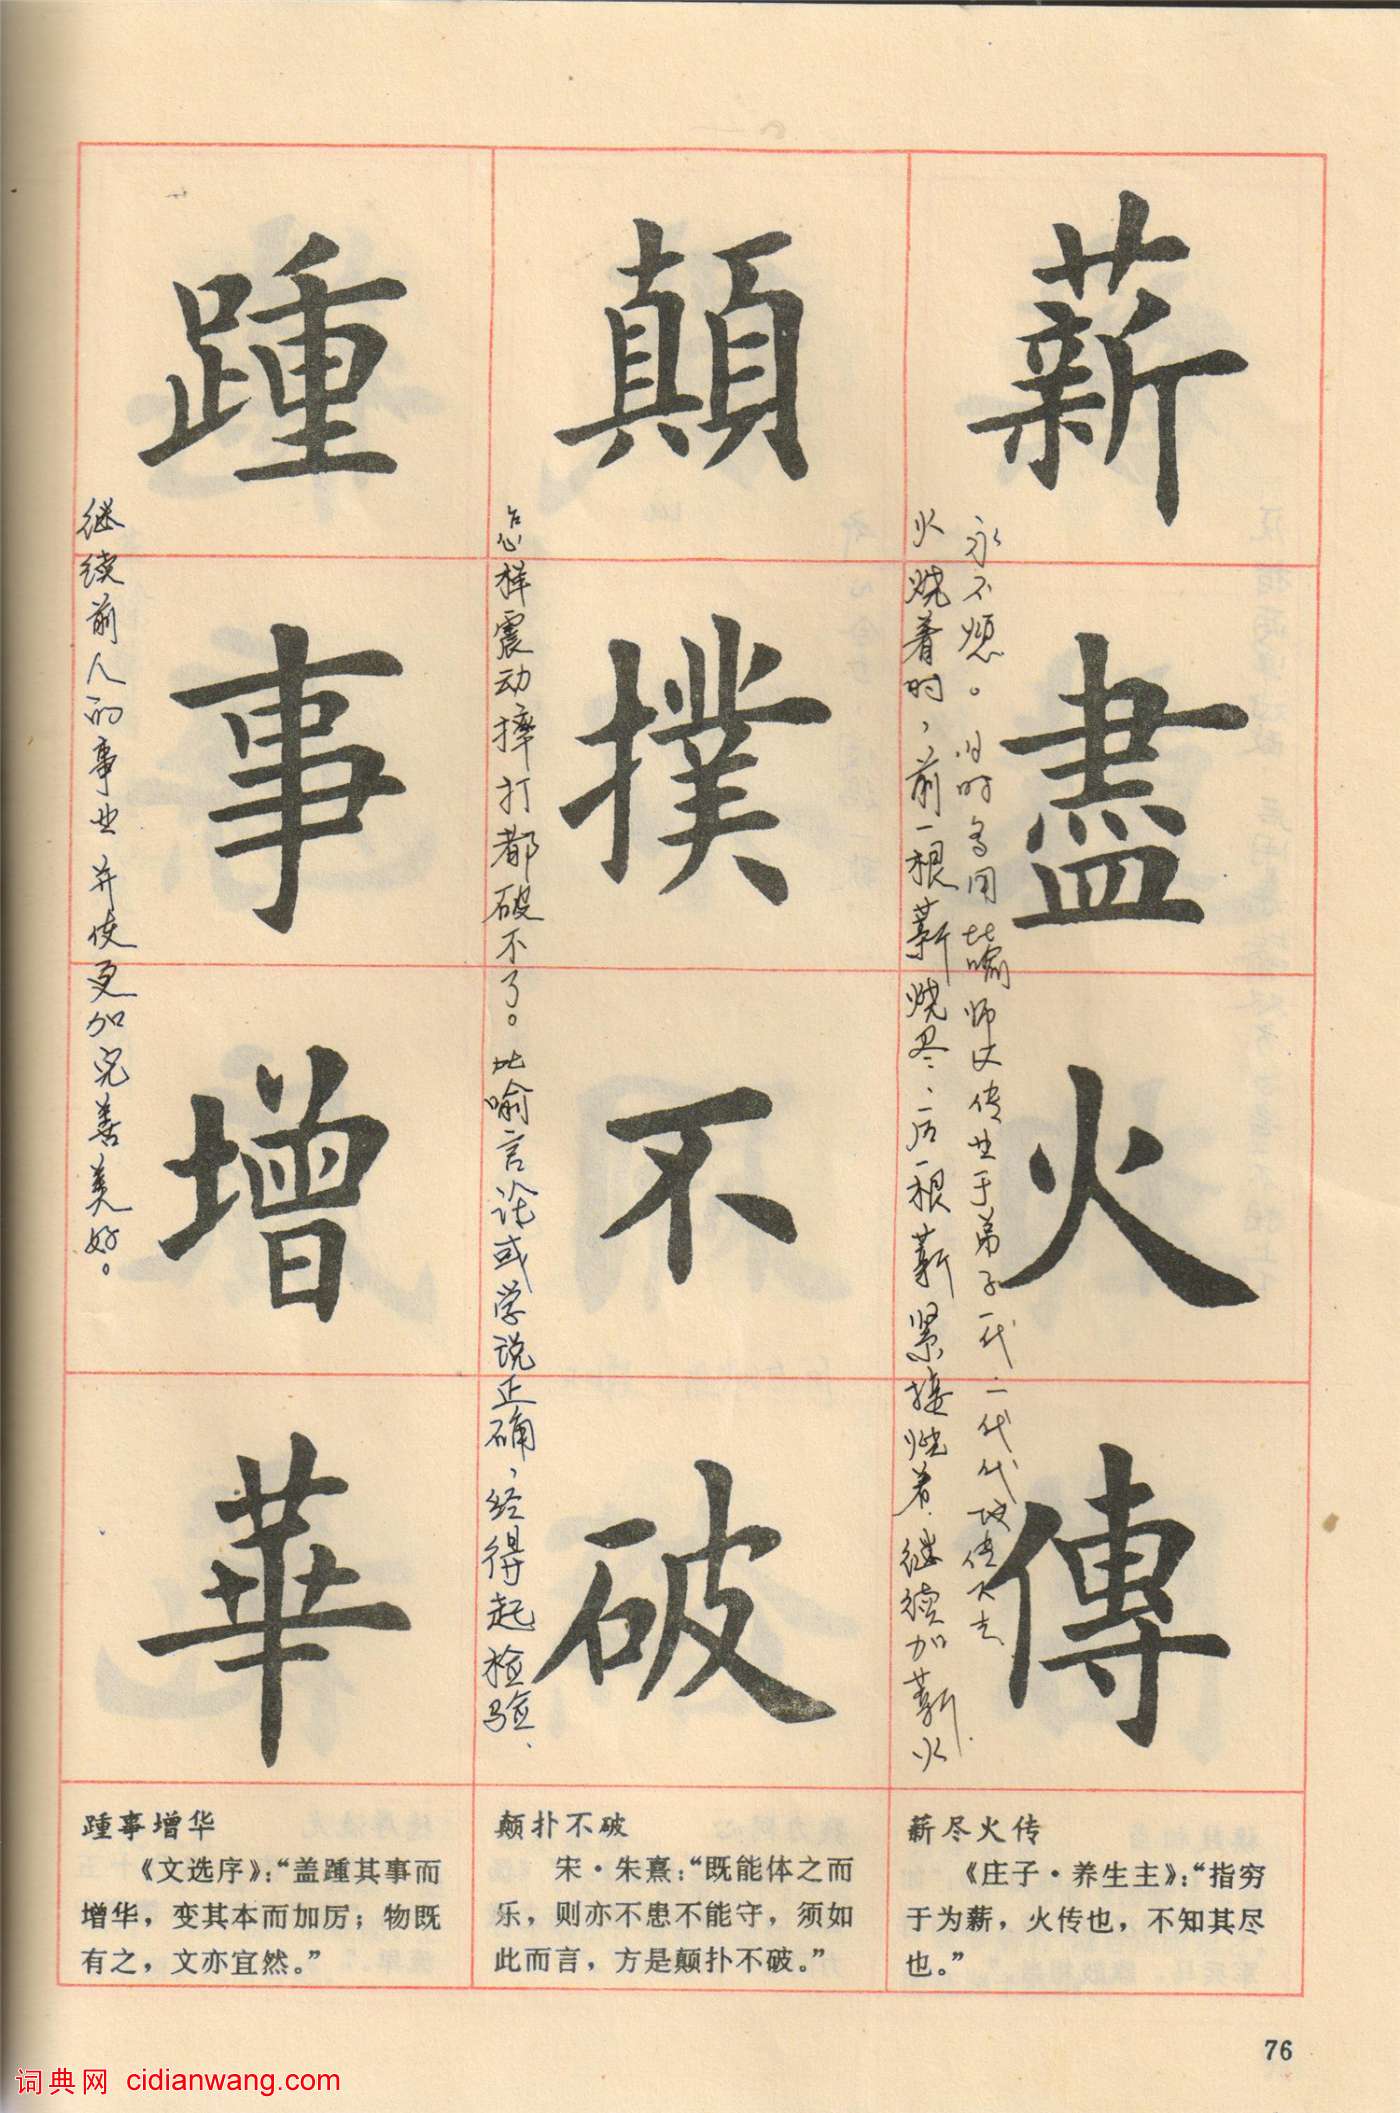 薪盡火傳
火烧着时，前一根薪烧尽、后一根薪紧接烧着.继续加薪.火
永不熄。旧时多用比喻师父传业于弟子一代二代代代传下去
薪尽火传
《庄子·养生主》：“指穷
于为薪，火传也，不知其尽
也。”
顛撲不破
怎样震动摔打都破不了。比喻言论或学说正确，经得起检验、
颠扑不破
宋·朱熹：“既能体之而
乐，则亦不患不能守，须如
此而言，方是颠扑不破。”
踵事增華
继续前人的事业并使更加完善美好。
踵事增华
《文选序》：“盖踵其事而
增华，变其本而加厉；物既
有之，文亦宜然。”
76
词典网 cidianwang.com